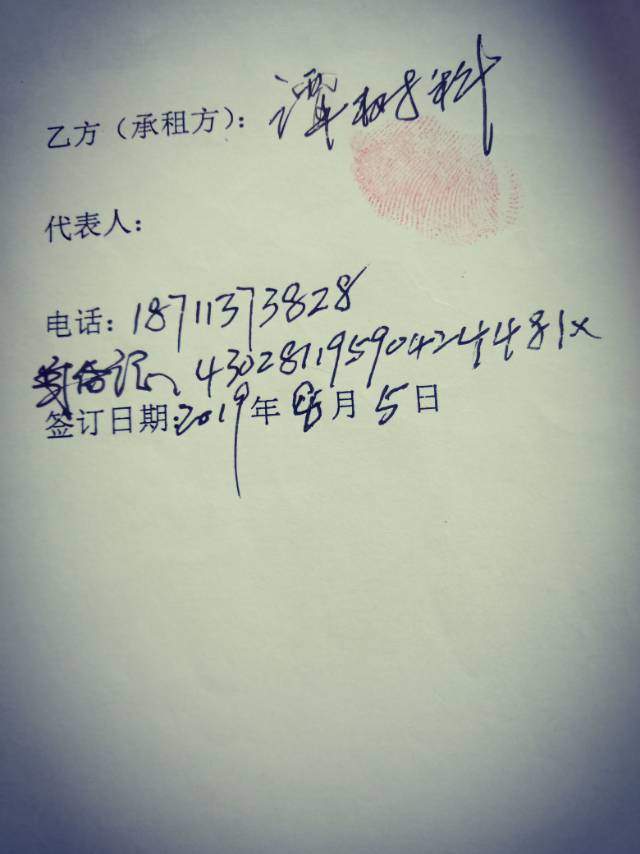 乙方（承租方）：谭树科
代表人：
电话：18711373828
身份证、43028119590424481x
签订日期：2019年 月5日